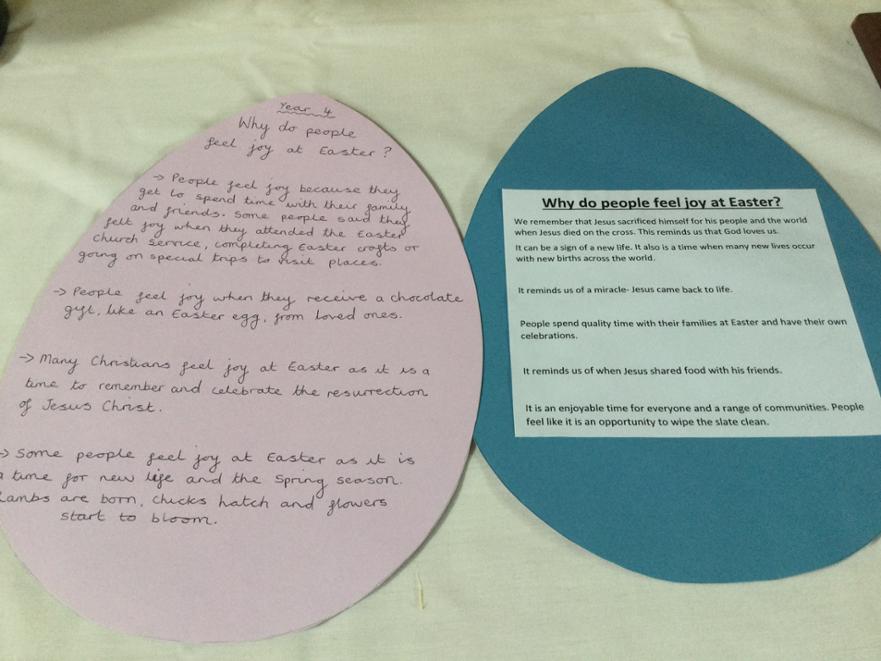 Year 4
Why do people
feel joy at Easter?
→ People feel joy because they
get to spend time with their family
and friends. Some people said they
felt joy when they attended the Easter
church service, completing Easter crafts or
going on special trips to visit places.
→ People feel joy when they receive a chocolate
gift, like an Easter egg, from loved ones.
→ Many Christians feel joy at Easter as it is a
time to remember and celebrate the resurrection
of Jesus Christ.
→ Some people feel joy at Easter as it is
a time for new life and the Spring season.
Lambs are born, chicks hatch and flowers
start to bloom.
Why do people feel joy at Easter?
We remember that Jesus sacrificed himself for his people and the world
when Jesus died on the cross. This reminds us that God loves us.
It can be a sign of a new life. It also is a time when many new lives occur
with new births across the world.
It reminds us of a miracle- Jesus came back to life.
People spend quality time with their families at Easter and have their own
celebrations.
It reminds us of when Jesus shared food with his friends.
It is an enjoyable time for everyone and a range of communities. People
feel like it is an opportunity to wipe the slate clean.